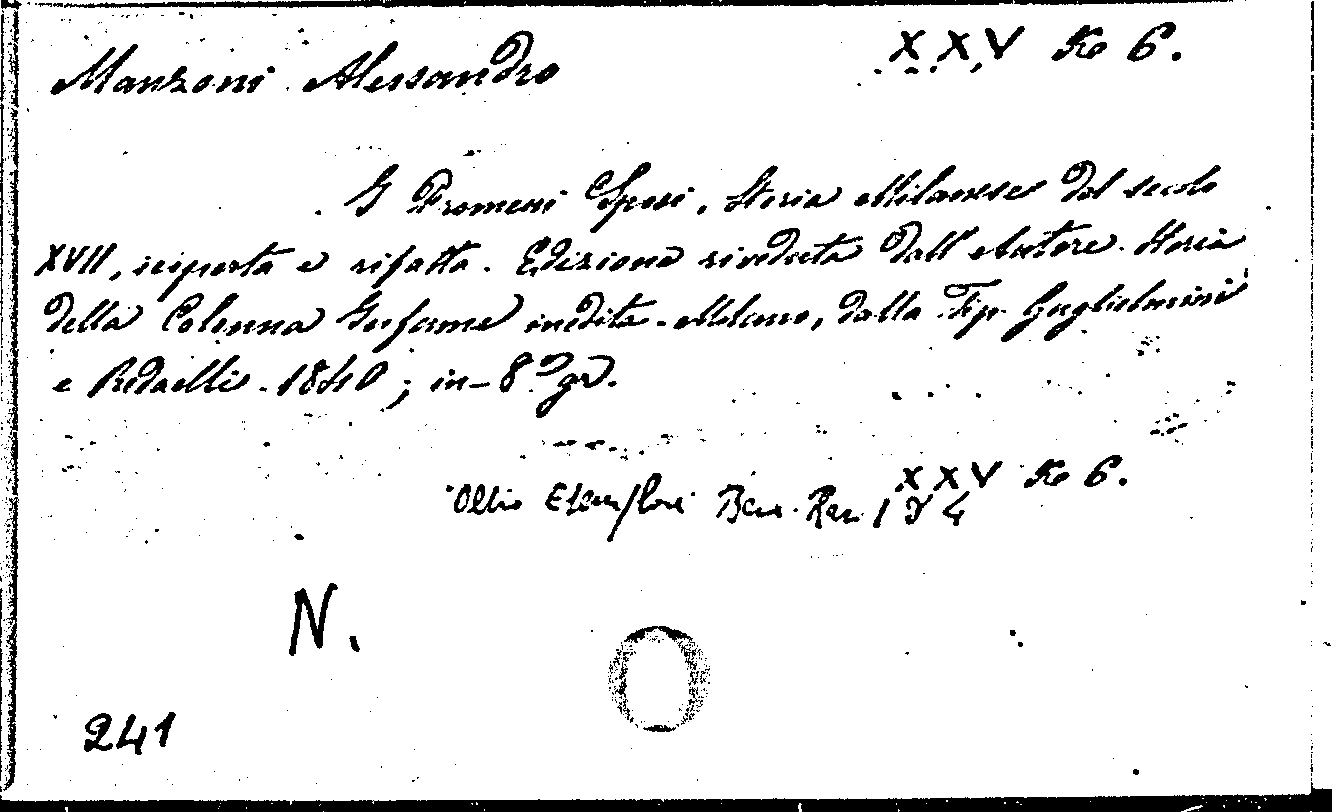 Manzoni Alessandro XXV Ko 6.
I Promessi Sposi, Storia Milanese dal secolo
XVII, scoperta e rifatta. Edizione riveduta dall' Autore. Storia
della Colonna Infame inedita. Milano, dalla Tip. Guglielmini
e Redaelli. 1840; in-8º gr.
XXV Ko 6.
Altro Esemplare Ban. Rar. 1 D 4
N.
241